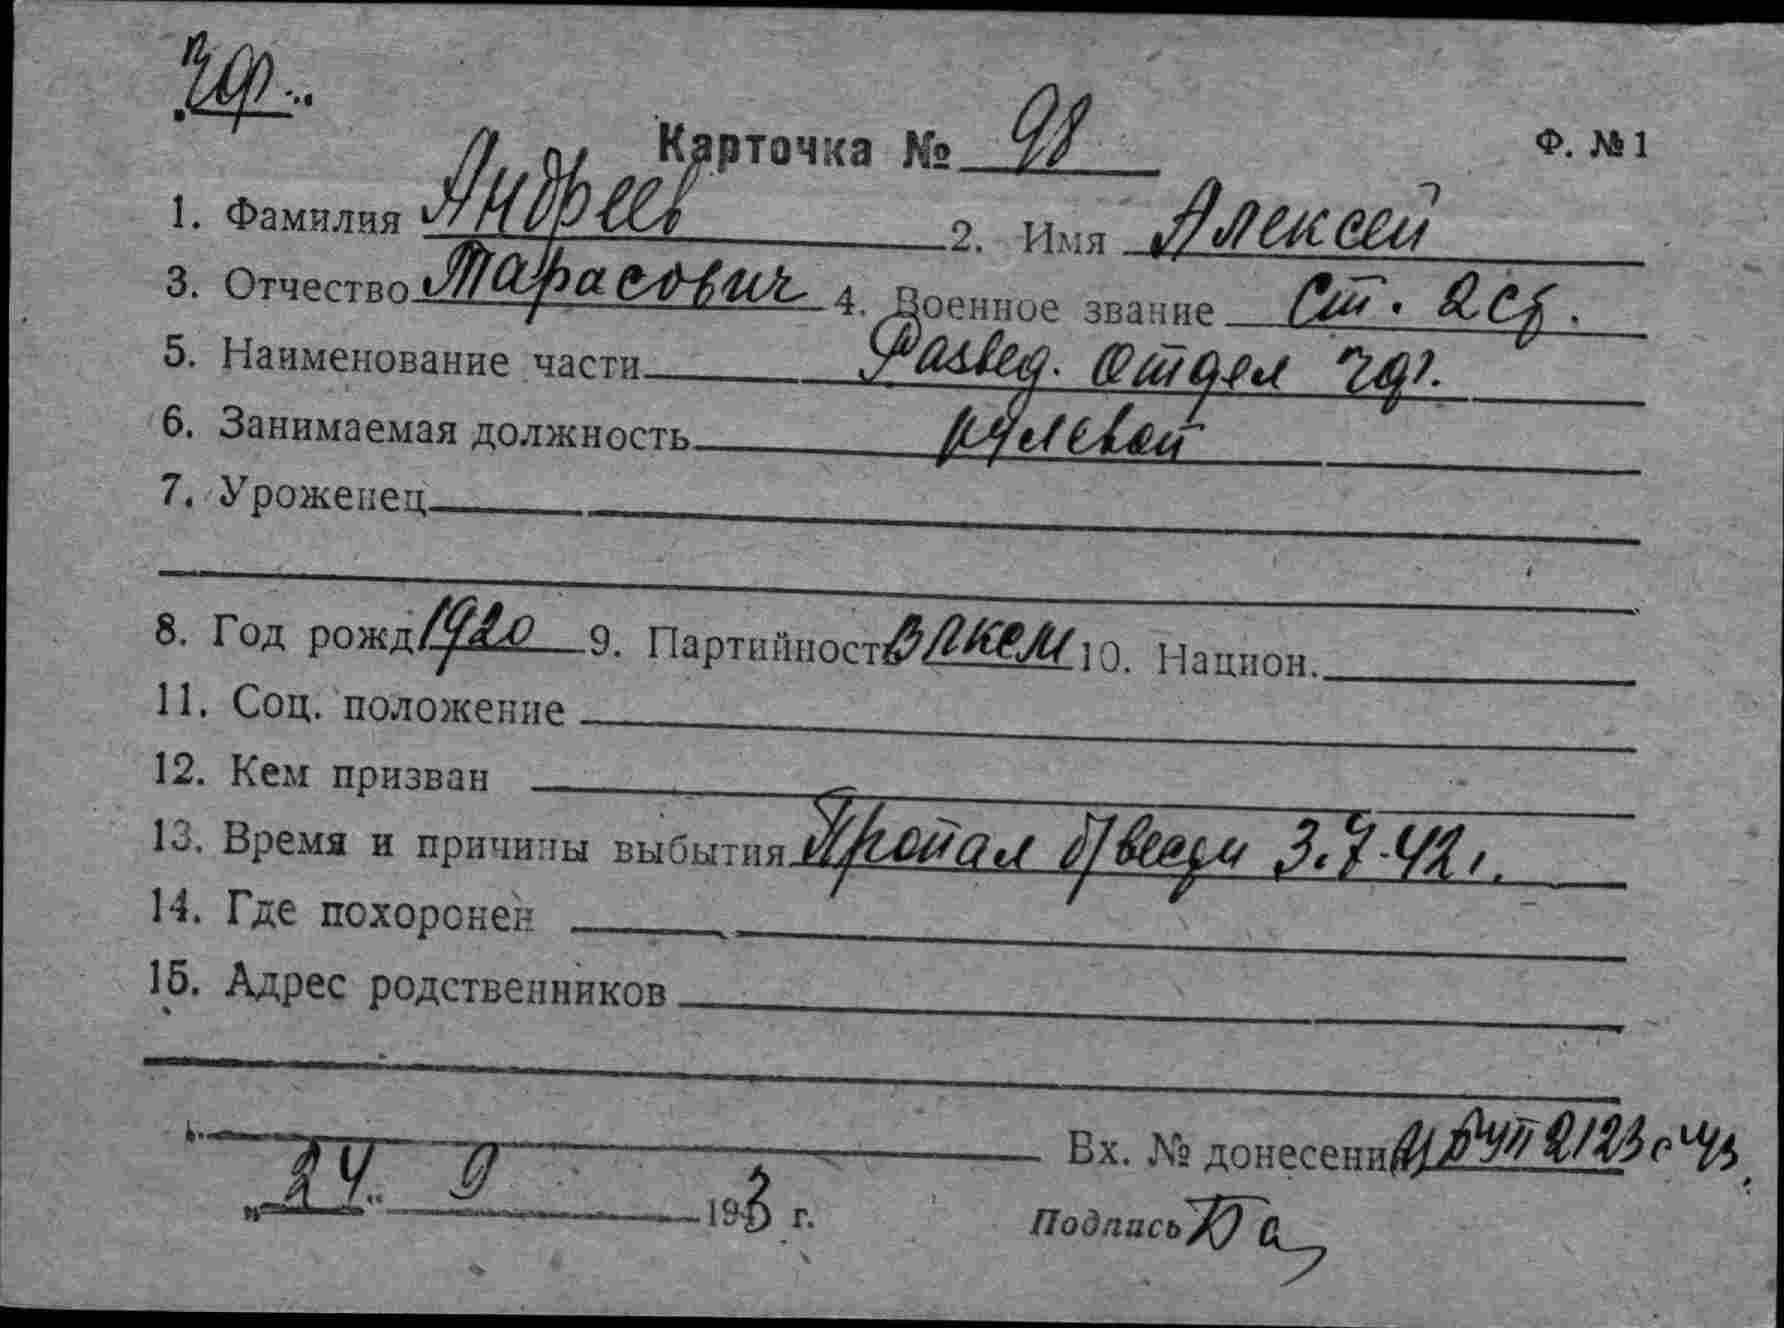 чф.
Карточка № 98 Ф. № 1
1. Фамилия Андреев 2. Имя Алексей
3. Отчество Тарасович 4. Военное звание Ст. 2 ст.
5. Наименование части Развед. Отдел чф.
6. Занимаемая должность рулевой
7. Уроженец
8. Год рожд 1920 9. Партийност ВЛКСМ 10. Национ.
11. Соц. положение
12. Кем призван
13. Время и причины выбытия Пропал б/вести 3.7.42 г.
14. Где похоронен
15. Адрес родственников
Вх. № донесени 2123с
„24" 9 1943 г. Подпись